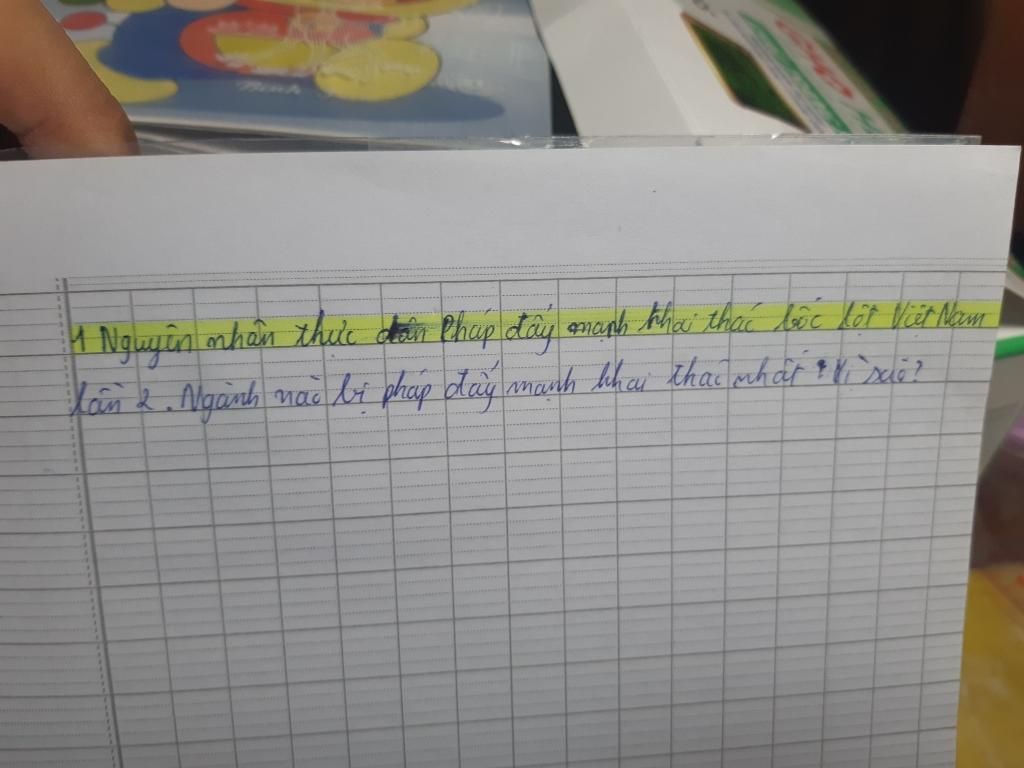 1 Nguyên nhân thực dân Pháp đẩy mạnh khai thác bóc lột Việt Nam
lần 2. Ngành nào bị pháp đẩy mạnh khai thác nhất ? Vì sao?